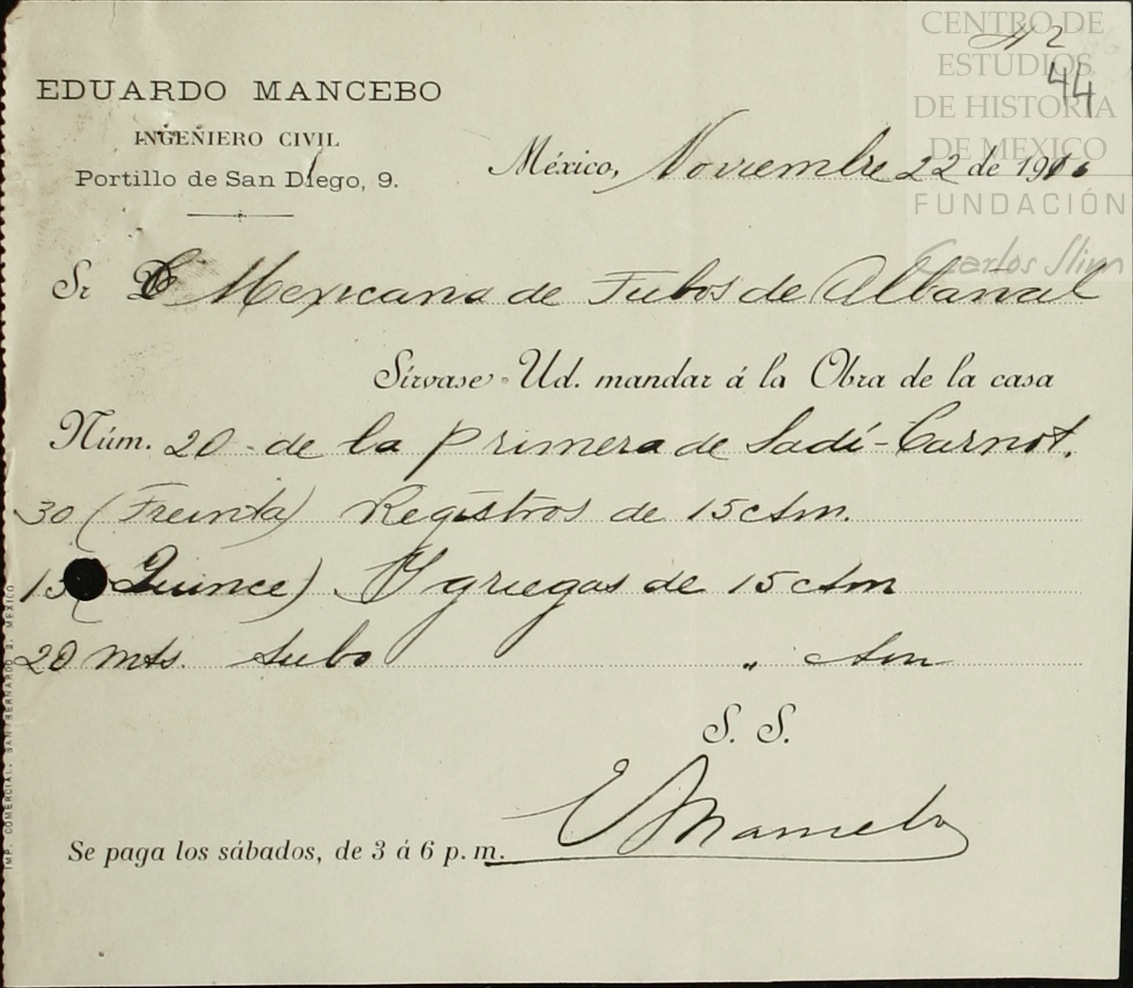 CENTRO DE
ESTUDIOS
DE HISTORIA
DE MEXICO
FUNDACIÓN
Carlos Slim
Nº 2
44
EDUARDO MANCEBO
INGENIERO CIVIL
Portillo de San Diego, 9.
México, Noviembre 22 de 19
Sr Mexicana de Tubos de Albañal
Sírvase Ud. mandar á la Obra de la casa
Núm. 20 - de la primera de Sadí-Carnot.
30 (Treinta) Registros de 15 ctm.
15 (Quince) Y griegas de 15 ctm
20 mts. tubo " ctm
S. S.
E Mancebo
Se paga los sábados, de 3 á 6 p. m.
IMP. COMERCIAL. SAN BERNARDO 3. MEXICO